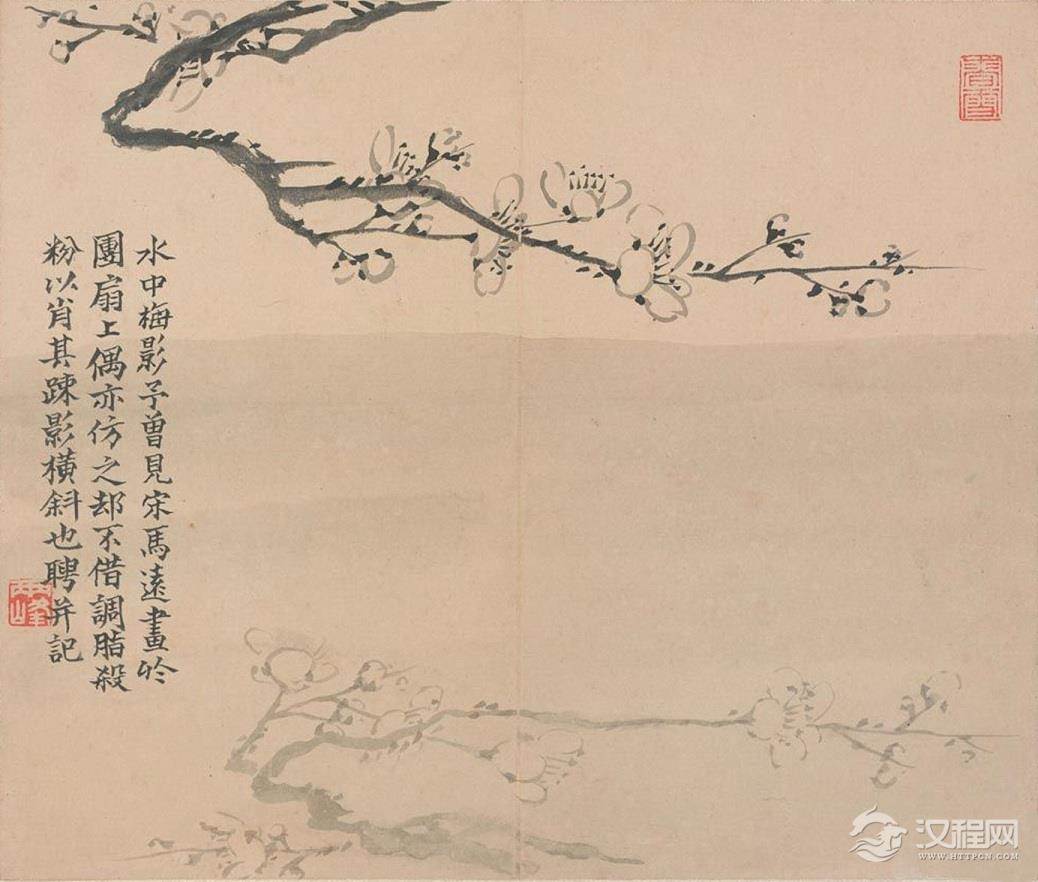 水中梅影予曾見宋馬遠畫於
團扇上偶亦仿之却不借調脂殺
粉以肖其踈影橫斜也聘并記
兩峰
汉程网
WWW.HTTPCN.COM